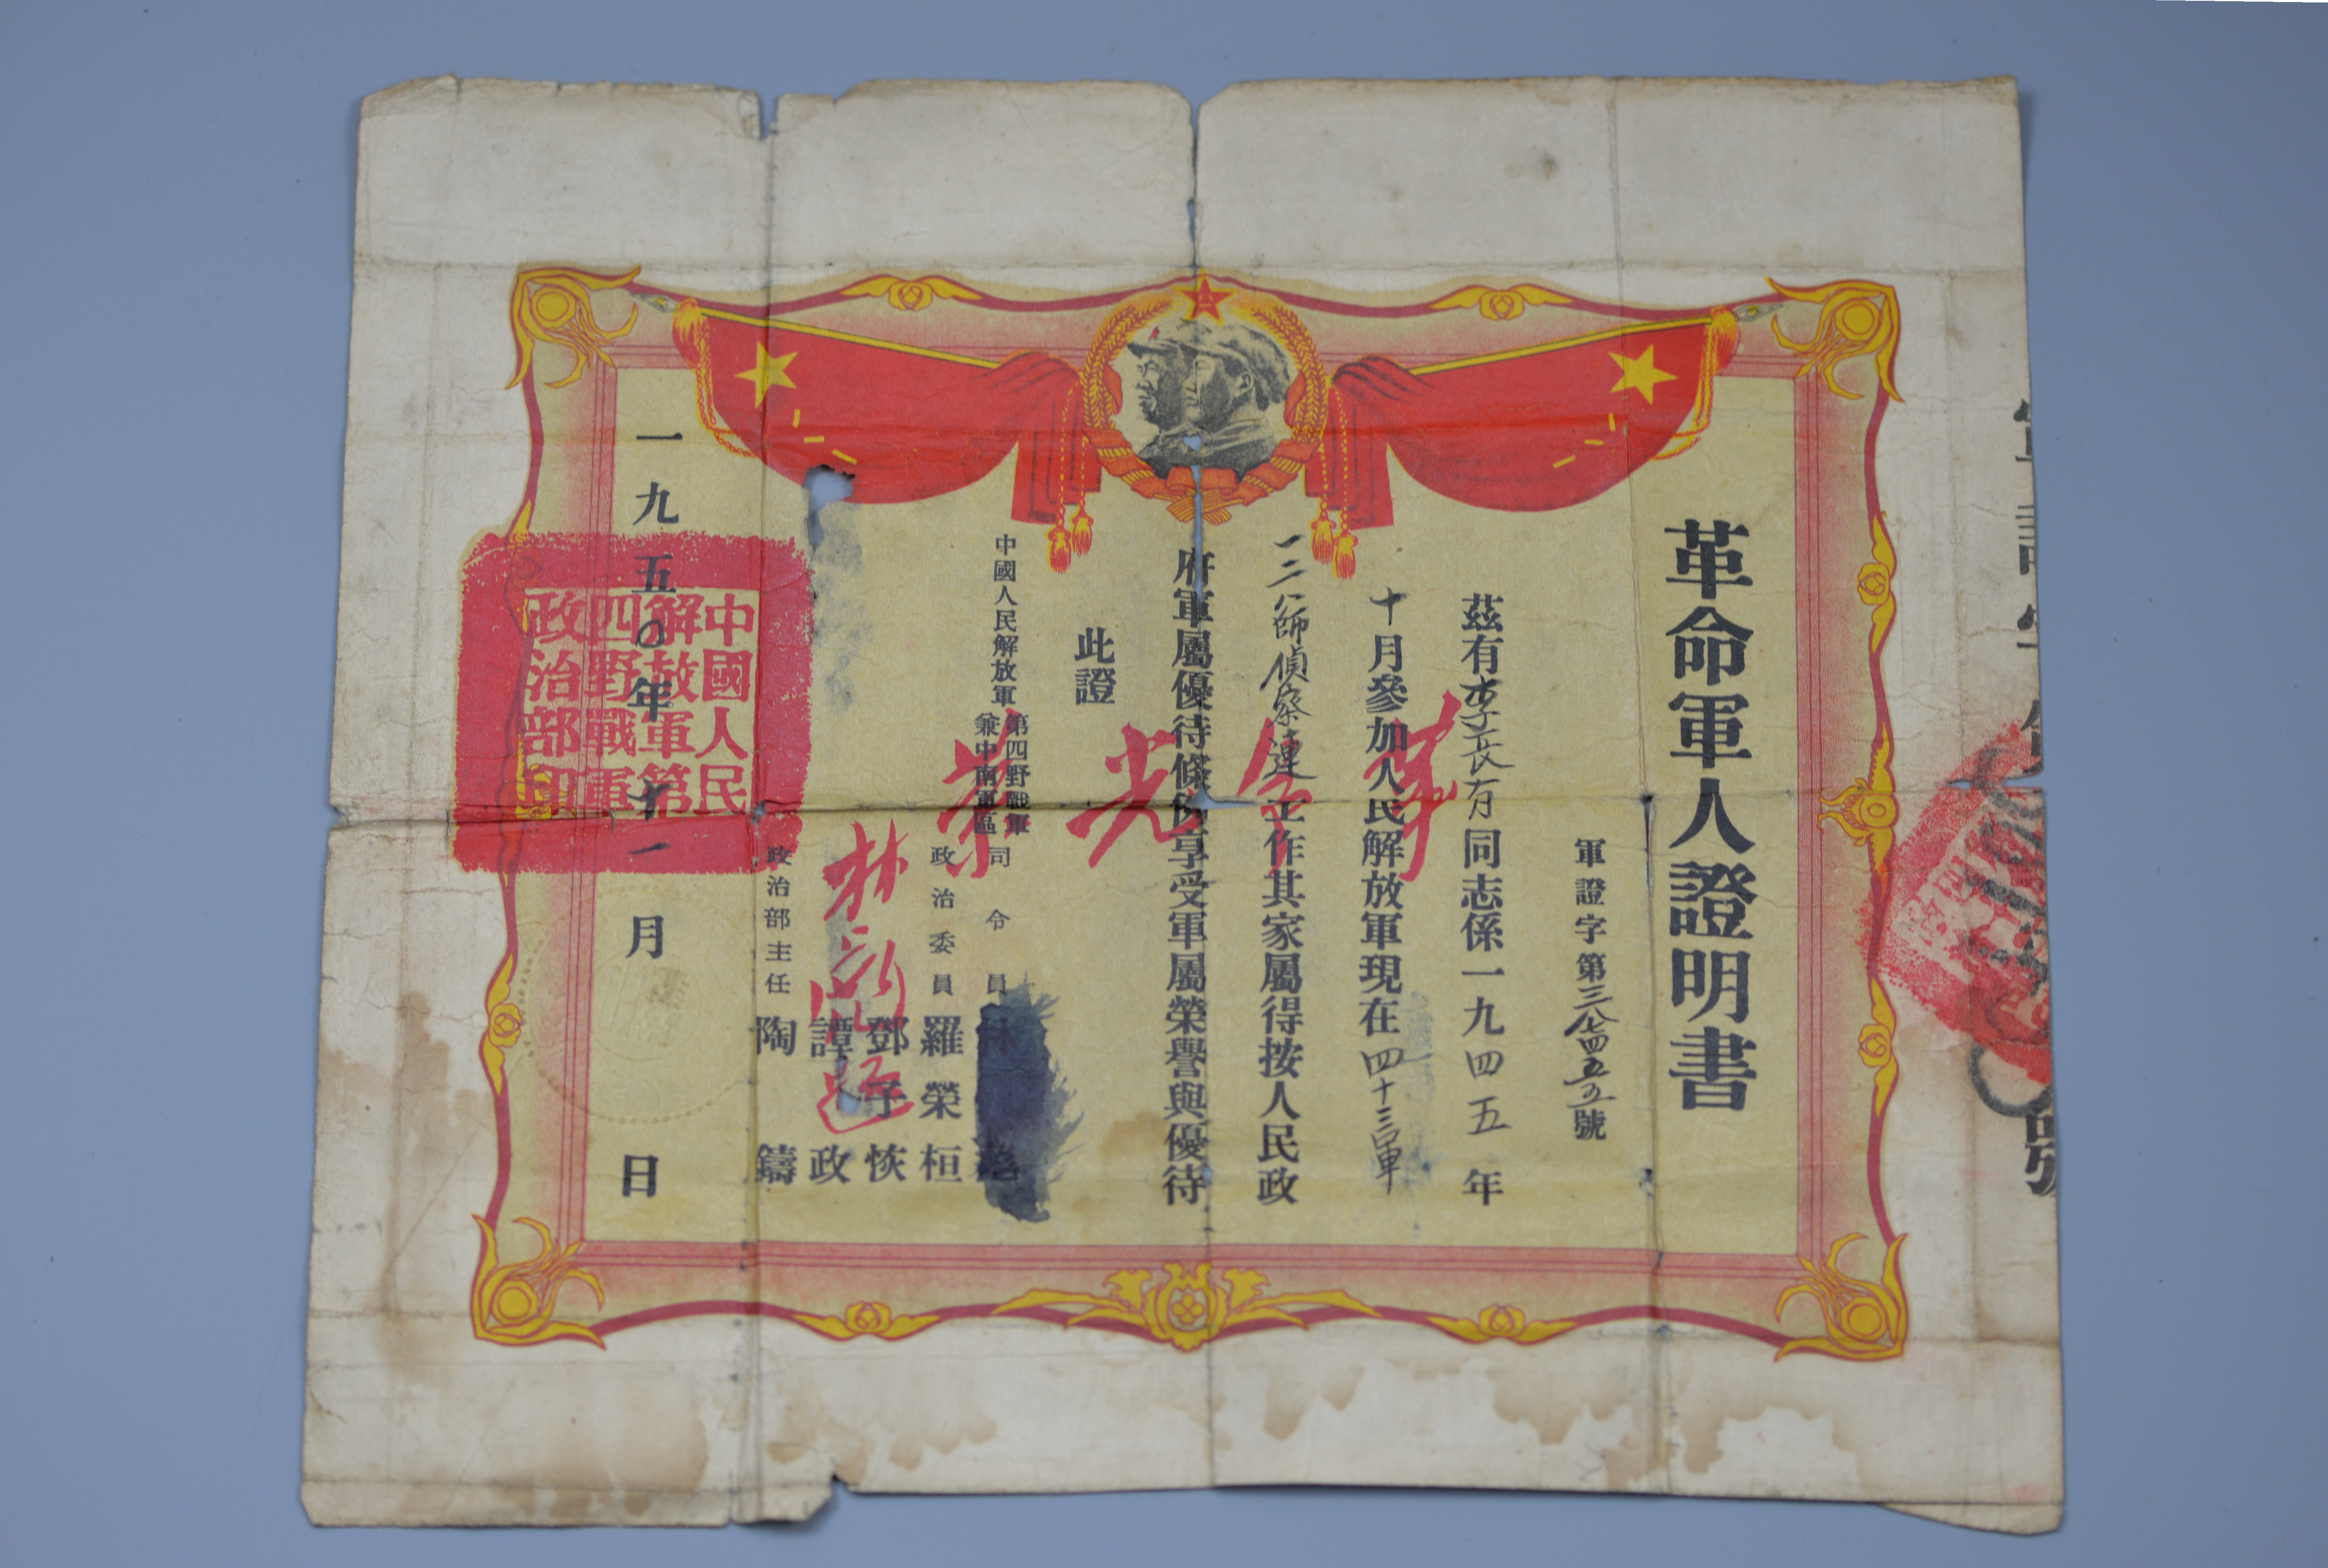 革命軍人證明書
軍證字第三八七四五五號
茲有李長有同志係一九四五年
十月參加人民解放軍現在四十三軍
一二八師偵察連工作其家屬得按人民政
府軍屬優待條例享受軍屬榮譽與優待
此證
革命光榮
中國人民解放軍
第四野戰軍
兼中南軍區
司令員
政治委員 羅榮桓
鄧子恢
譚政
政治部主任 陶鑄
一九五〇年十一月 日
中國人民
解放軍第
四野戰軍
政治部印
號